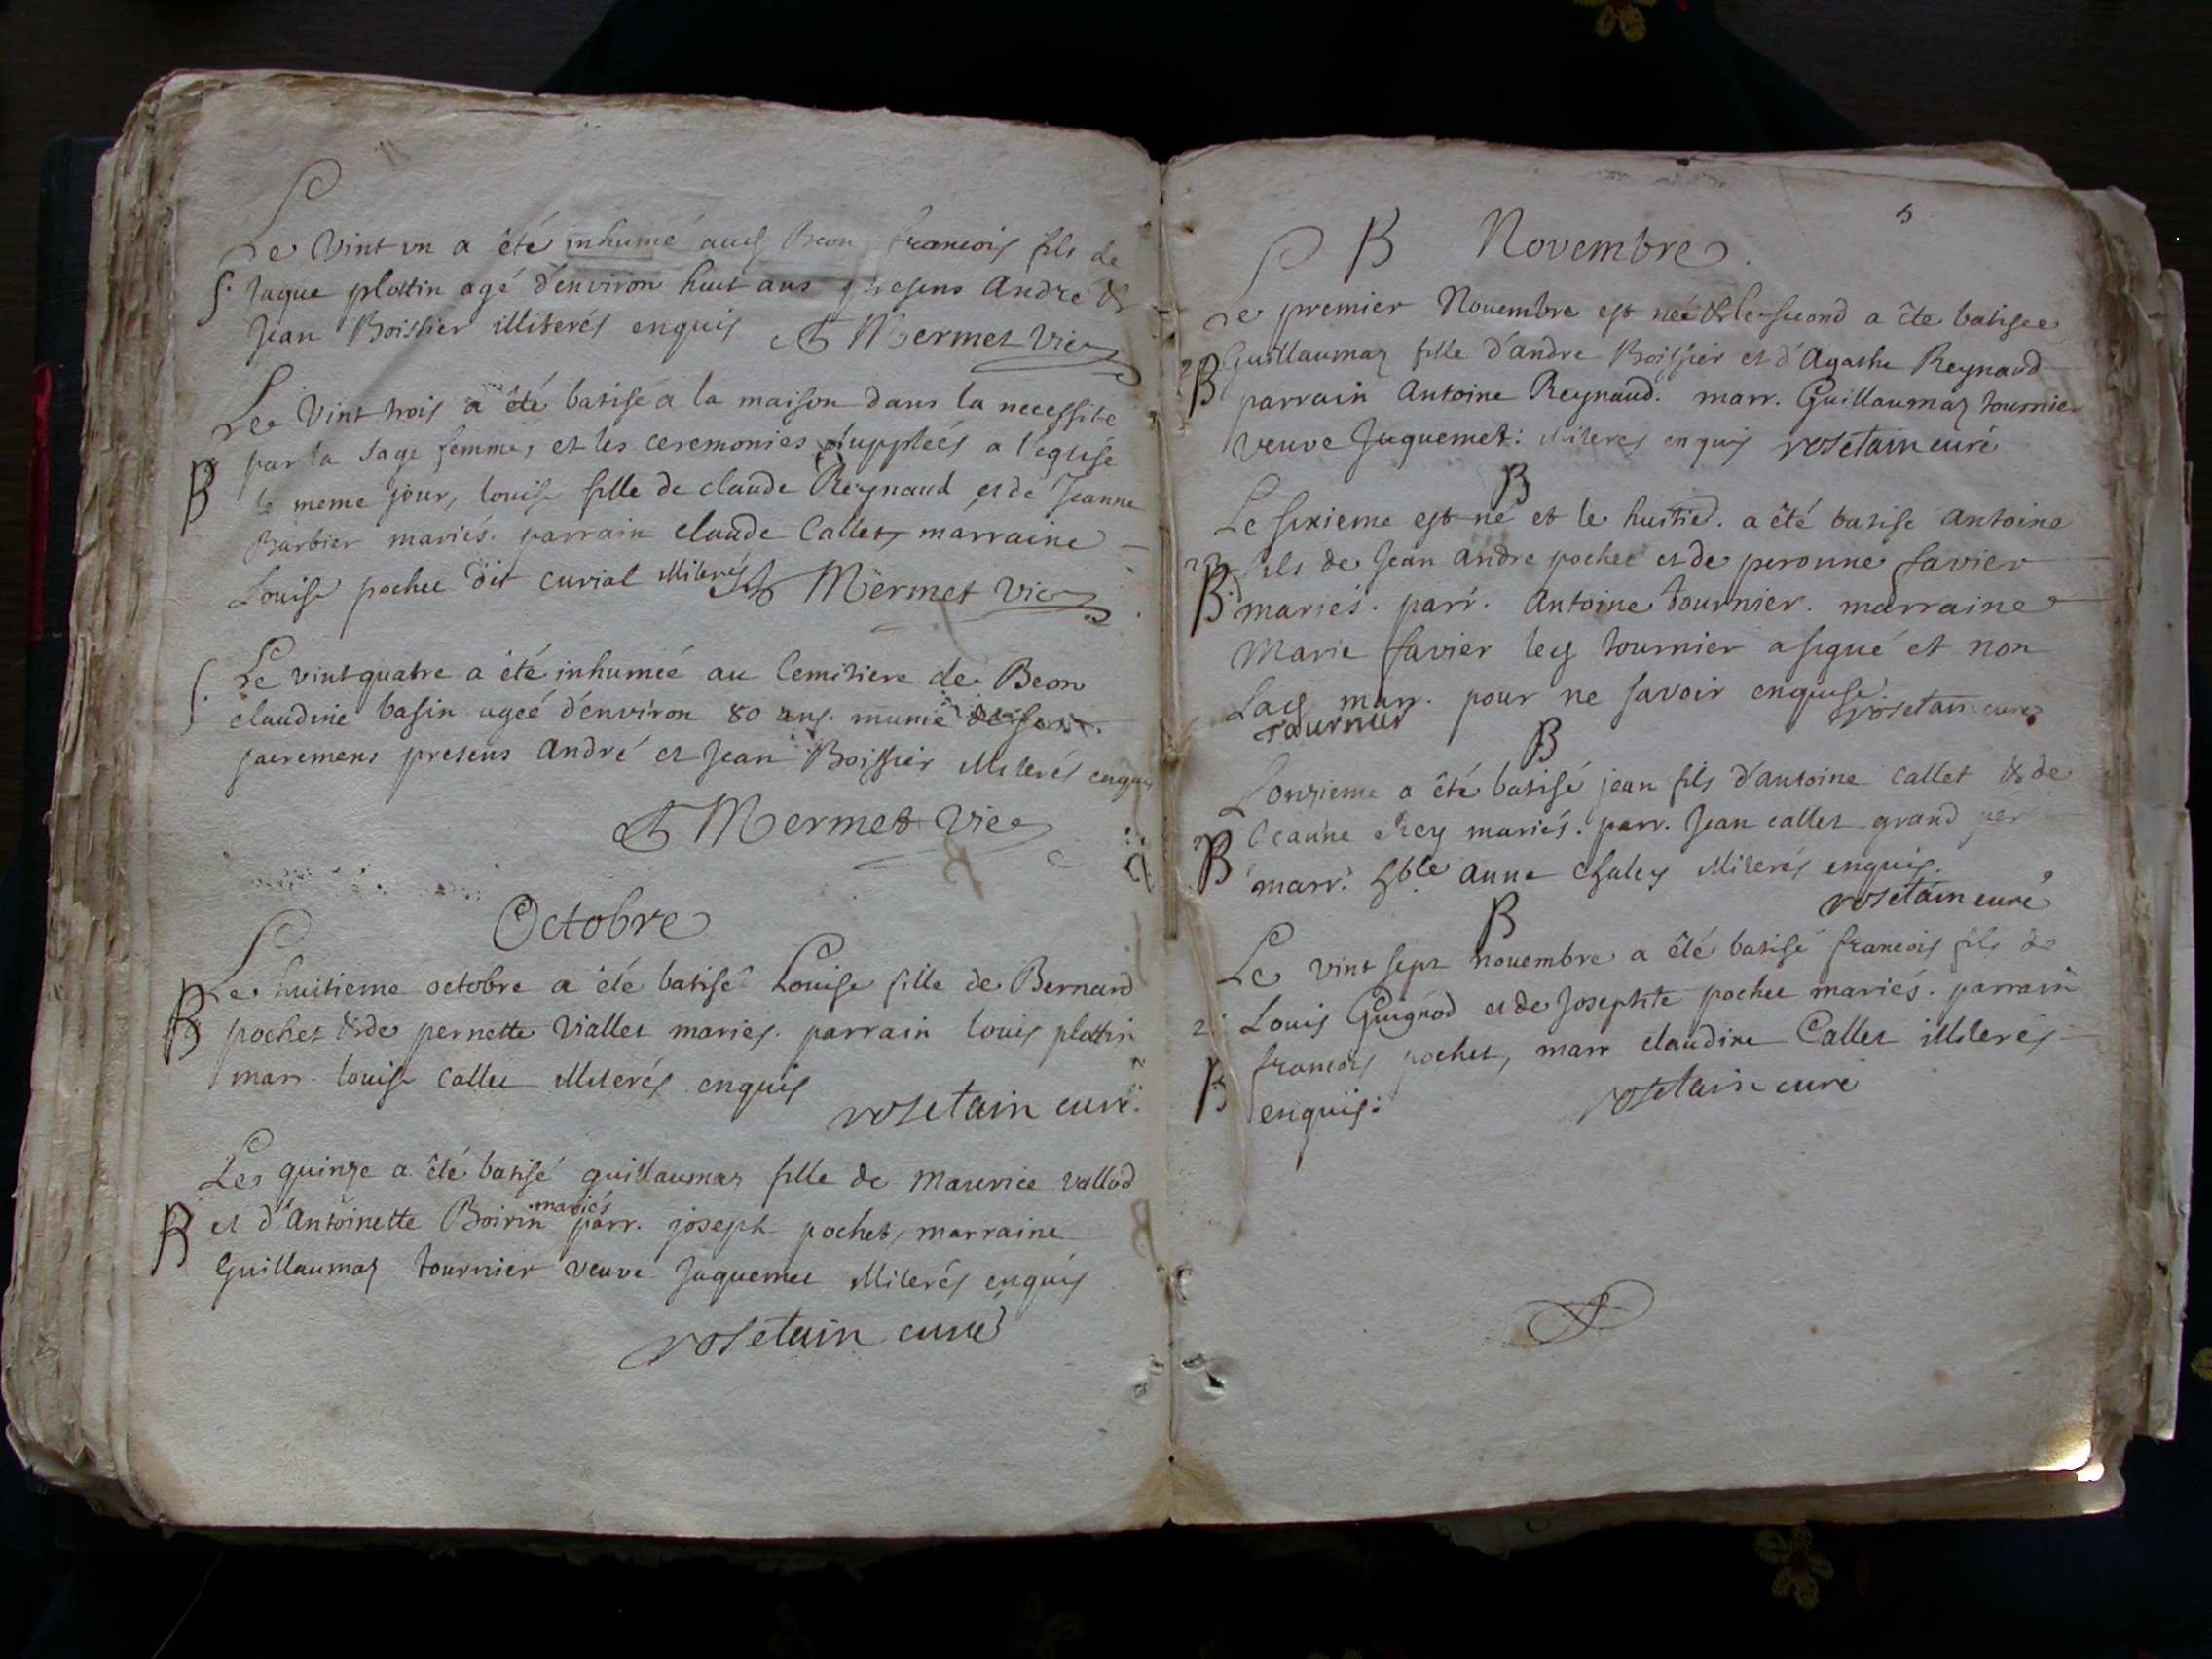 Le vint un a été inhumé aud Beon francois fils de
S. Jaque plottin agé d'environ huit ans presens André &
Jean Boissier illiterés enquis Mermet vic
Le vint trois a été batisé a la maison dans la necessité
par la sage femme, et les ceremonies supplées a l'eglise
B le meme jour, louise fille de claude Reynaud et de Jeanne
Barbier mariés. parrain claude Callet, marraine
Louise pochet dit curial illiterés Mermet vic
S. Le vint quatre a été inhumée au Cemitiere de Beon
claudine basin agée d'environ 80 ans. munie
sacremens presens andré et Jean Boissier illiterés enquis
Mermet vic
Octobre
Le huitieme octobre a été batisé Louise fille de Bernard
B pochet & de pernette Viallet mariés. parrain louis plottin
marr. louise Callet illiterés enquis
rosetain curé.
Le quinze a été batisé guillaumaz fille de Maurice vallod
mariés
B et d'Antoinette Boirin parr. joseph pochet, marraine
Guillaumaz tournier veuve Juquemet illiterés enquis
rosetain curé
5
B Novembre
Le premier Novembre est née & le second a éte batisee
Guillaumaz fille d'andre Boissier et d'Agathe Reynaud
B parrain Antoine Reynaud. marr. Guillaumaz tournier
veuve Juquemet: illiterés enquis rosetain curé
B
Le sixieme est né et le huitie. a été batisé antoine
fils de Jean andre pochet et de peronne favier
B mariés. parr. Antoine tournier. marraine
Marie favier led tournier a signé et non
Lad marr. pour ne savoir enquise.
Tournier rosetain curé
B
L'onzieme a été batisé jean fils d'antoine callet & de
Jeanne Rey mariés. parr. Jean callet grand per
B marr. hble anne chaley illiterés enquis.
rosetain curé
B
Le vint sept novembre a été batisé francois fils de
Louis Guignod et de Josephte pochet mariés. parrain
francois pochet, marr claudine Callet illiterés
B enquis: rosetain curé